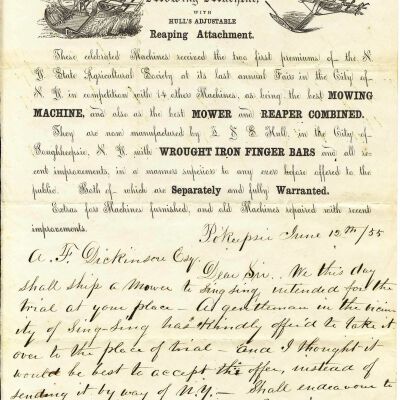 Mowing Machine,
WITH
HULL'S ADJUSTABLE
Reaping Attachment.
These celebrated Machines received the two first premiums of the N.
Y. State Agricultural Society at its last annual Fair in the City of
N. Y. in competition with 14 other Machines, as being the best MOWING
MACHINE, and also as the best MOWER and REAPER COMBINED.
They are now manufactured by & Hull, in the City of
Poughkeepsie, N. Y. with WROUGHT IRON FINGER BARS and all re
cent improvements, in a manner superior to any ever before offered to the
public. Both of which are Separately and fully Warranted.
Extras for Machines furnished, and old Machines repaired with recent
improvements.
Po'Keepsie June 12th/55
A. F. Dickinson Esq.
Dear Sir. We this day
shall ship a Mower to Sing sing, intended for the
trial at your place - A gentleman in the vicin
ity of Sing-Sing has kindly offer'd to take it
over to the place of trial - and I thought it
would be best to accept the offer, instead of
sending it by way of N.Y. - Shall endeavour to